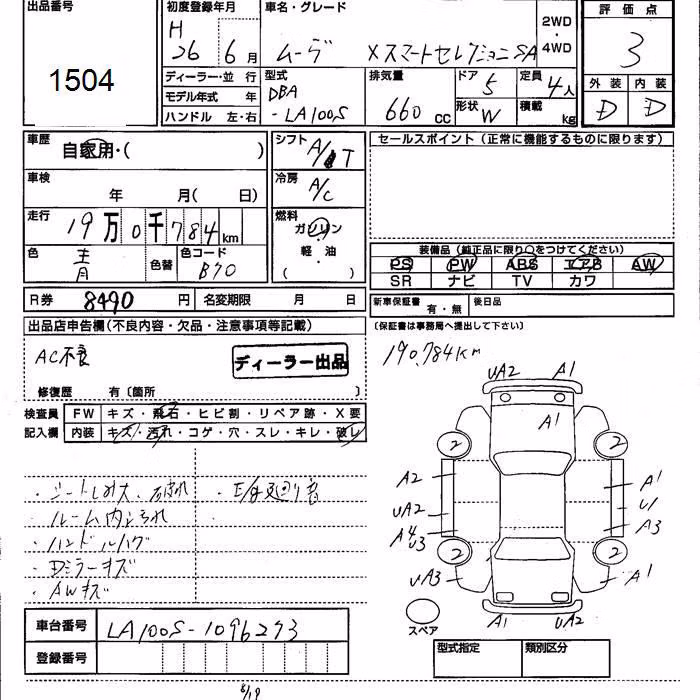 出品番号
1504
初度登録年月
H 26年 6月
ディーラー・並行
モデル年式 年
ハンドル 左・右
車名・グレード
ムーヴ XスマートセレクションSA
2WD
・
4WD
型式
DBA
-LA100S
排気量
660 CC
ドア 5
形状 W
定員 4人
積載 kg
評価点
3
外装 内装
D D
車歴
自家用・( )
車検
年 月( 日)
走行
19万0千784km
色 青 色替 色コード B70
シフト A/T
冷房 A/C
燃料
ガソリン
軽・油
( )
セールスポイント(正常に機能するものに限ります)
装備品(純正品に限り○をつけてください)
PS PW ABS エアB AW
SR ナビ TV カワ
R券 8490円 名変期限 月 日
新車保証書 有・無 後日品
(保証書は事務局へ提出して下さい)
出品店申告欄(不良内容・欠品・注意事項等記載)
AC不良
ディーラー出品
修復歴 有〔箇所 〕
190,784km
検査員 FW キズ・飛石・ヒビ割・リペア跡・X要
記入欄 内装 キズ・汚れ・コゲ・穴・スレ・キレ・破レ
・シートしみ大、破れ
・ルーム内よごれ
・ハンドルハゲ
・Dミラーキズ
・AWキズ
UA2 A1
A1
2 2
A2 A1
UA2 U1
A4 U3 A3
2 2
UA3 A1
A1 UA2
スペア
車台番号 LA100S-1096273
登録番号
型式指定 類別区分
8/19